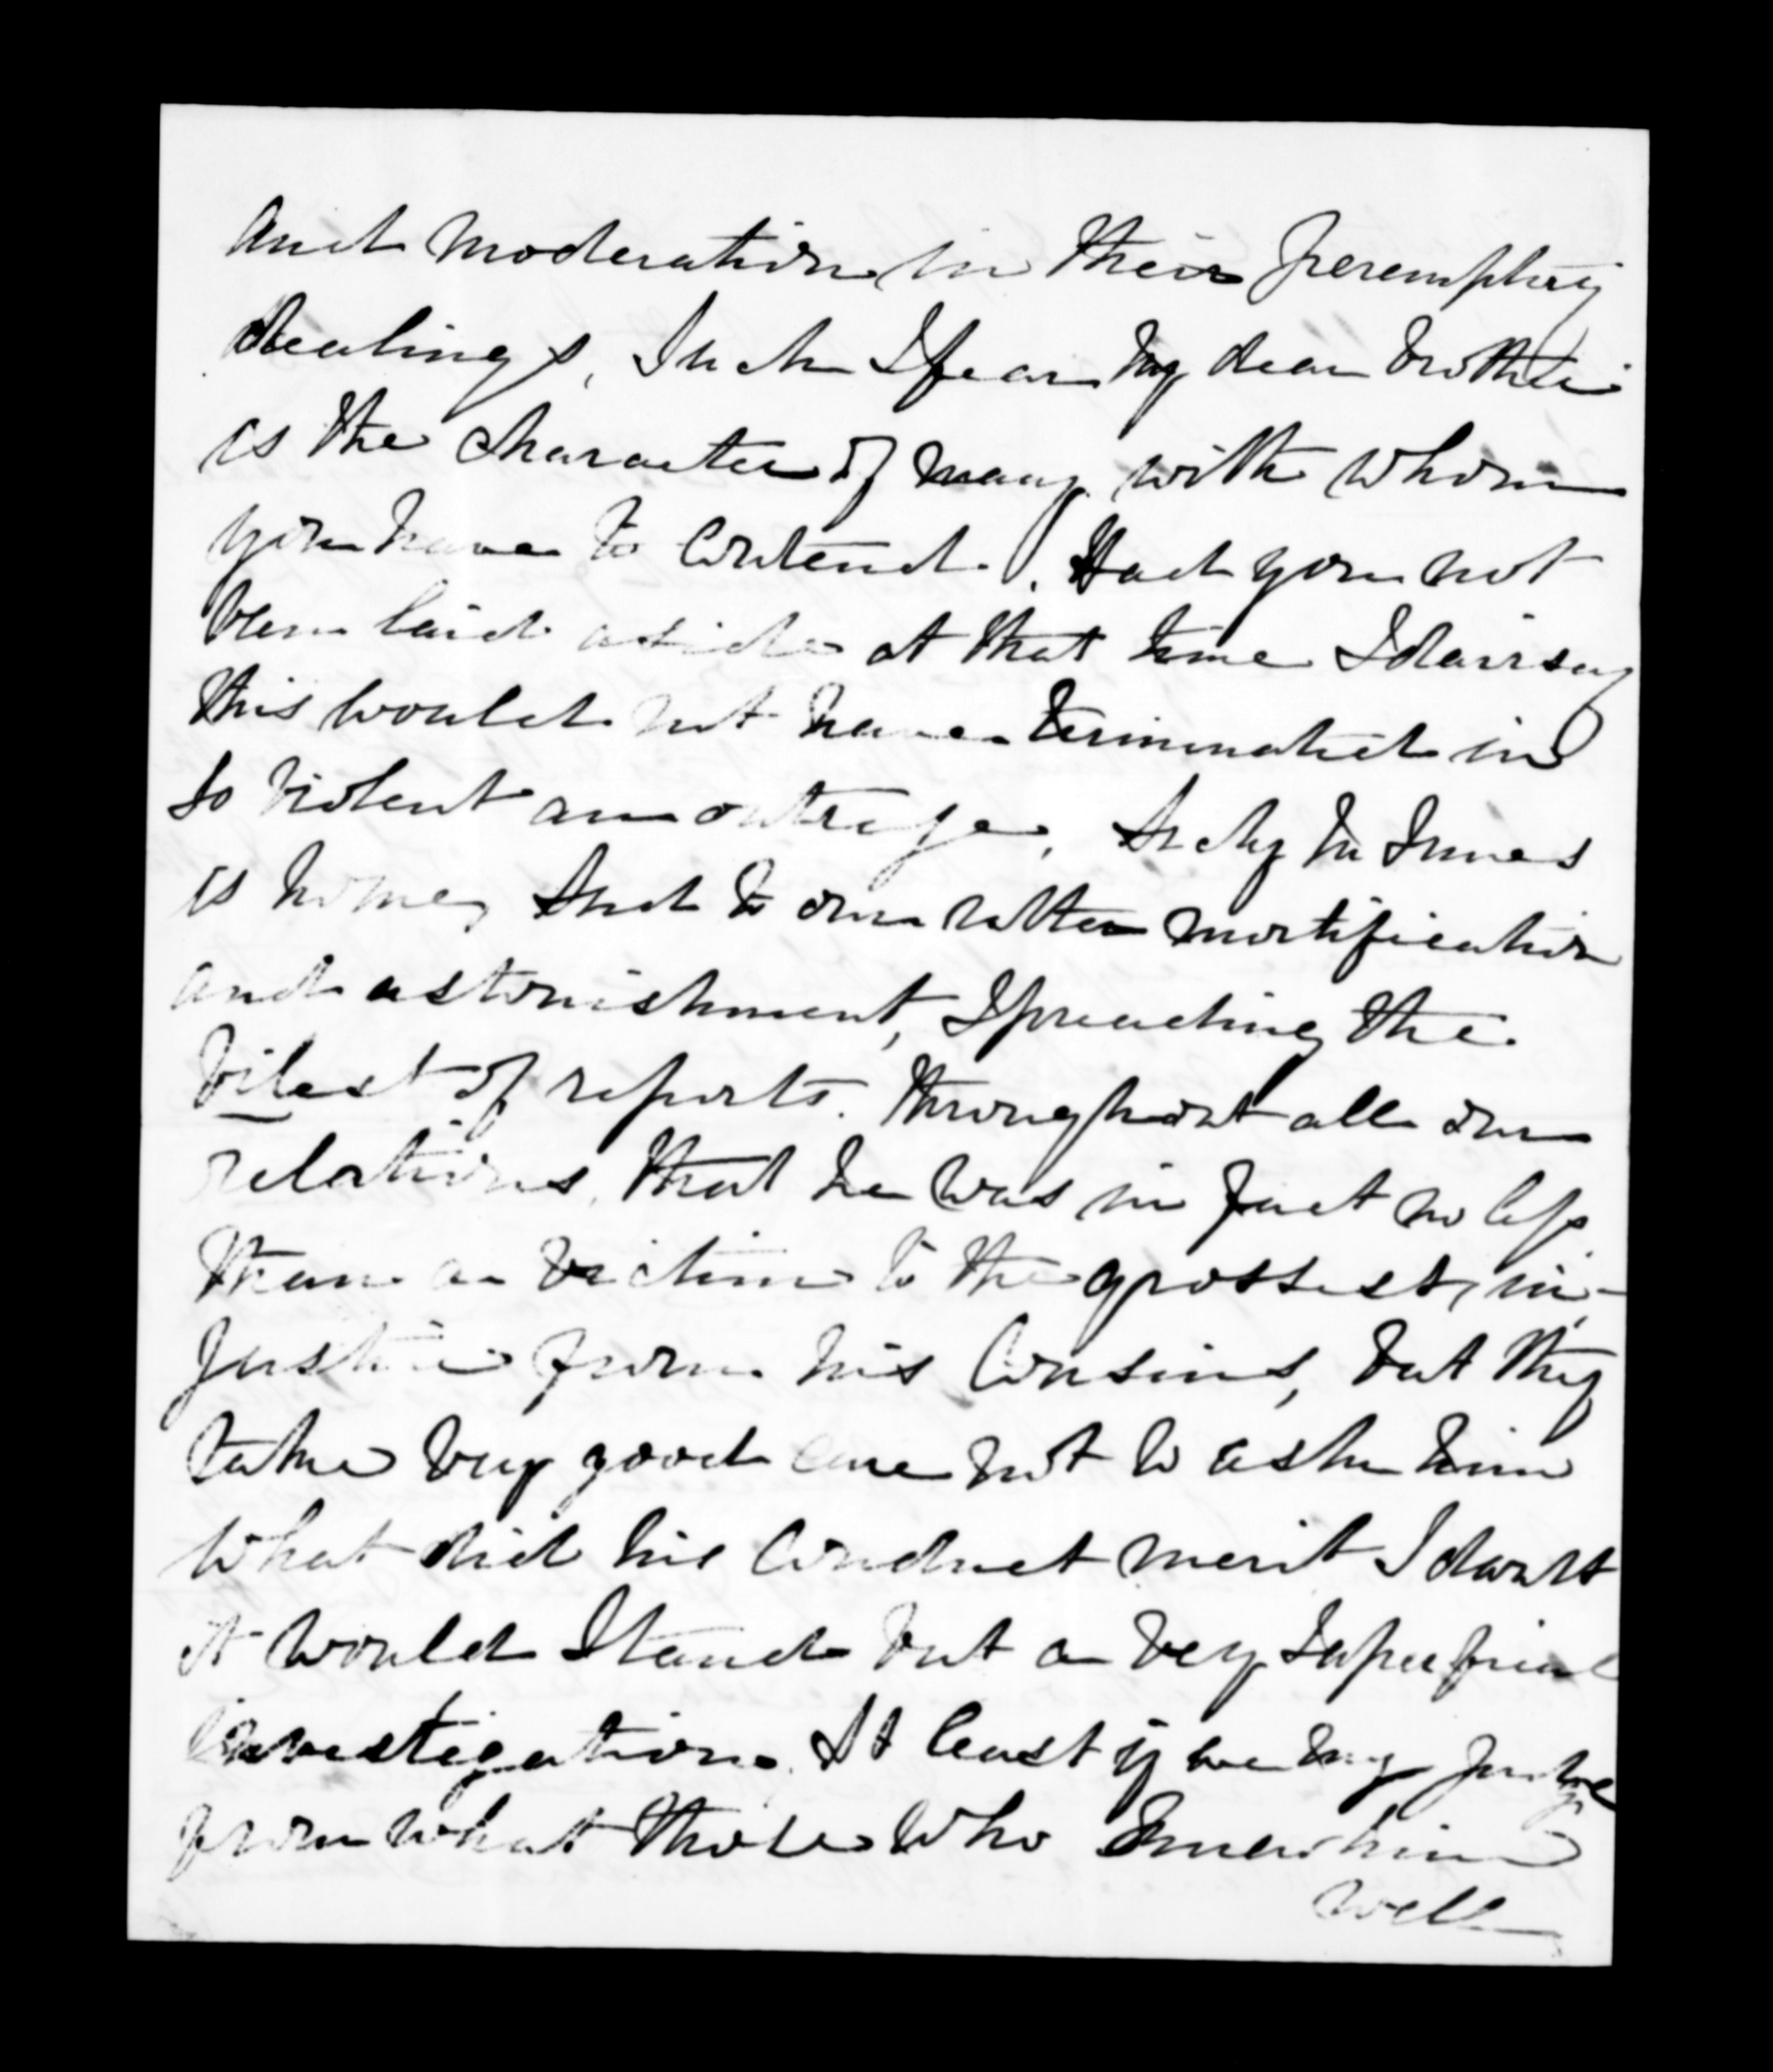 and moderation in their peremptory
dealings, Such I fear my dear brother
is the character of many with whom
you have to contend. Had you not
been laid aside at that time I dairsay
this would not have terminated in
so violent an outrage. Archy Mc Innes
is home, And to our utter mortification
and astonishment, Spreading the
vilest of reports. throughout all our
relations, that he was in fact no less
than a victim to the grossest, in-
justice from his Cousins, but they
take very good care not to ask him
what did his Conduct merit I doubt
it would Stand but a very Superficial
investigation. At least if we may judge
from what those who knew him
well